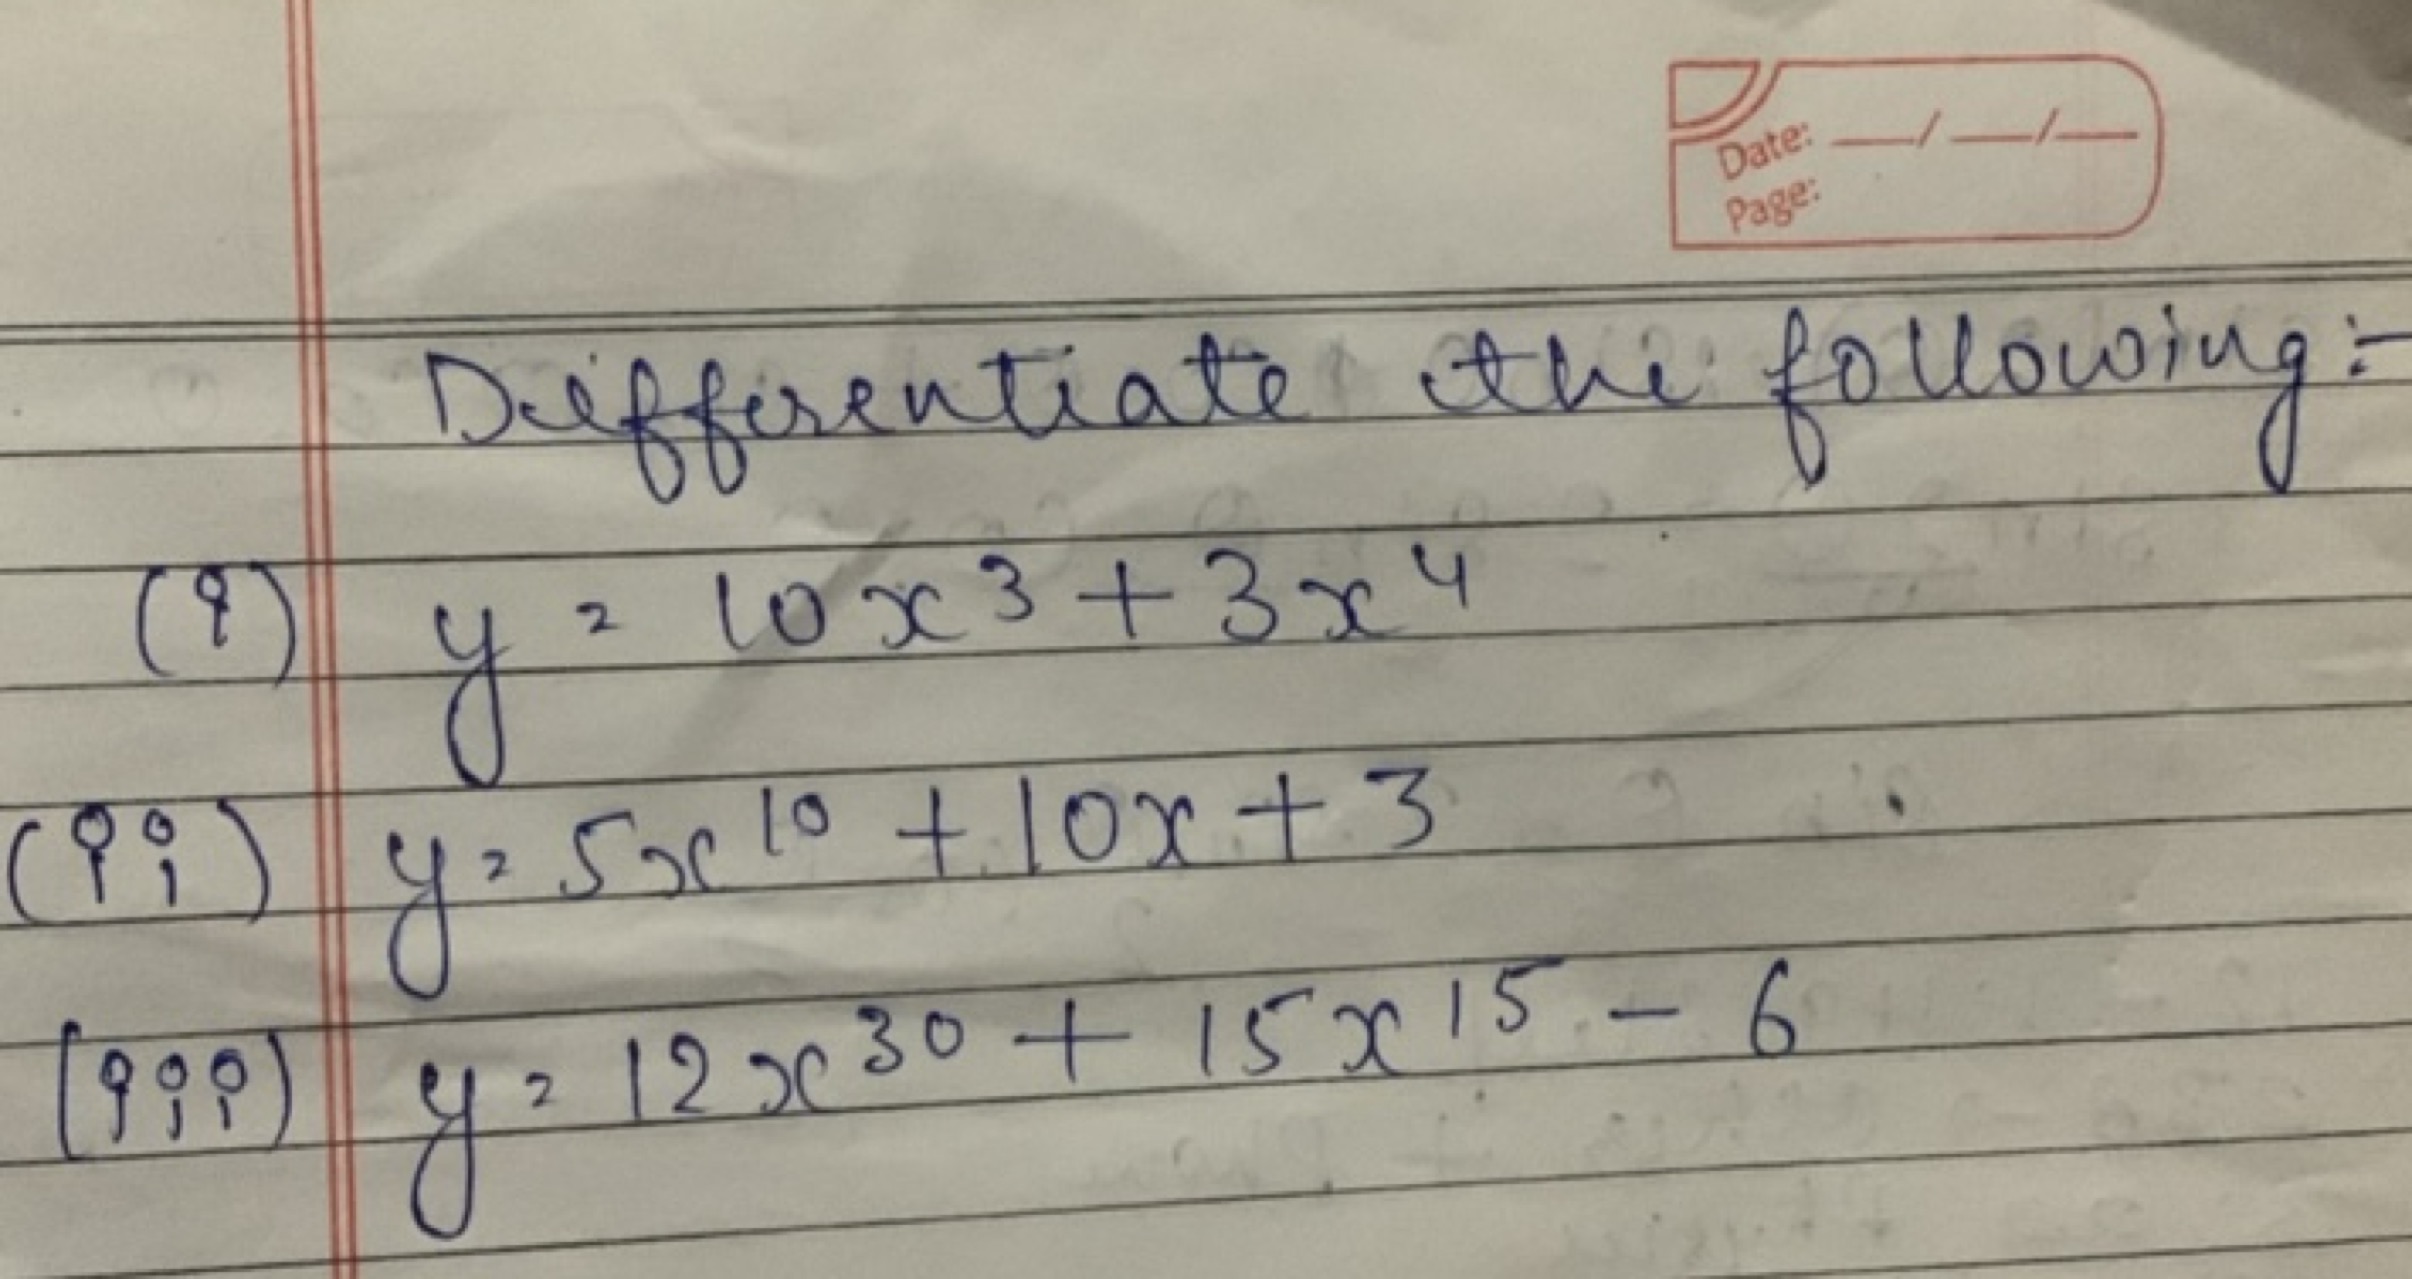 Date: __/__/__
Page:
Differentiate the following:-
(i) y = 10x³ + 3x⁴
(ii) y = 5x¹⁰ + 10x + 3
(iii) y = 12x³⁰ + 15x¹⁵ - 6